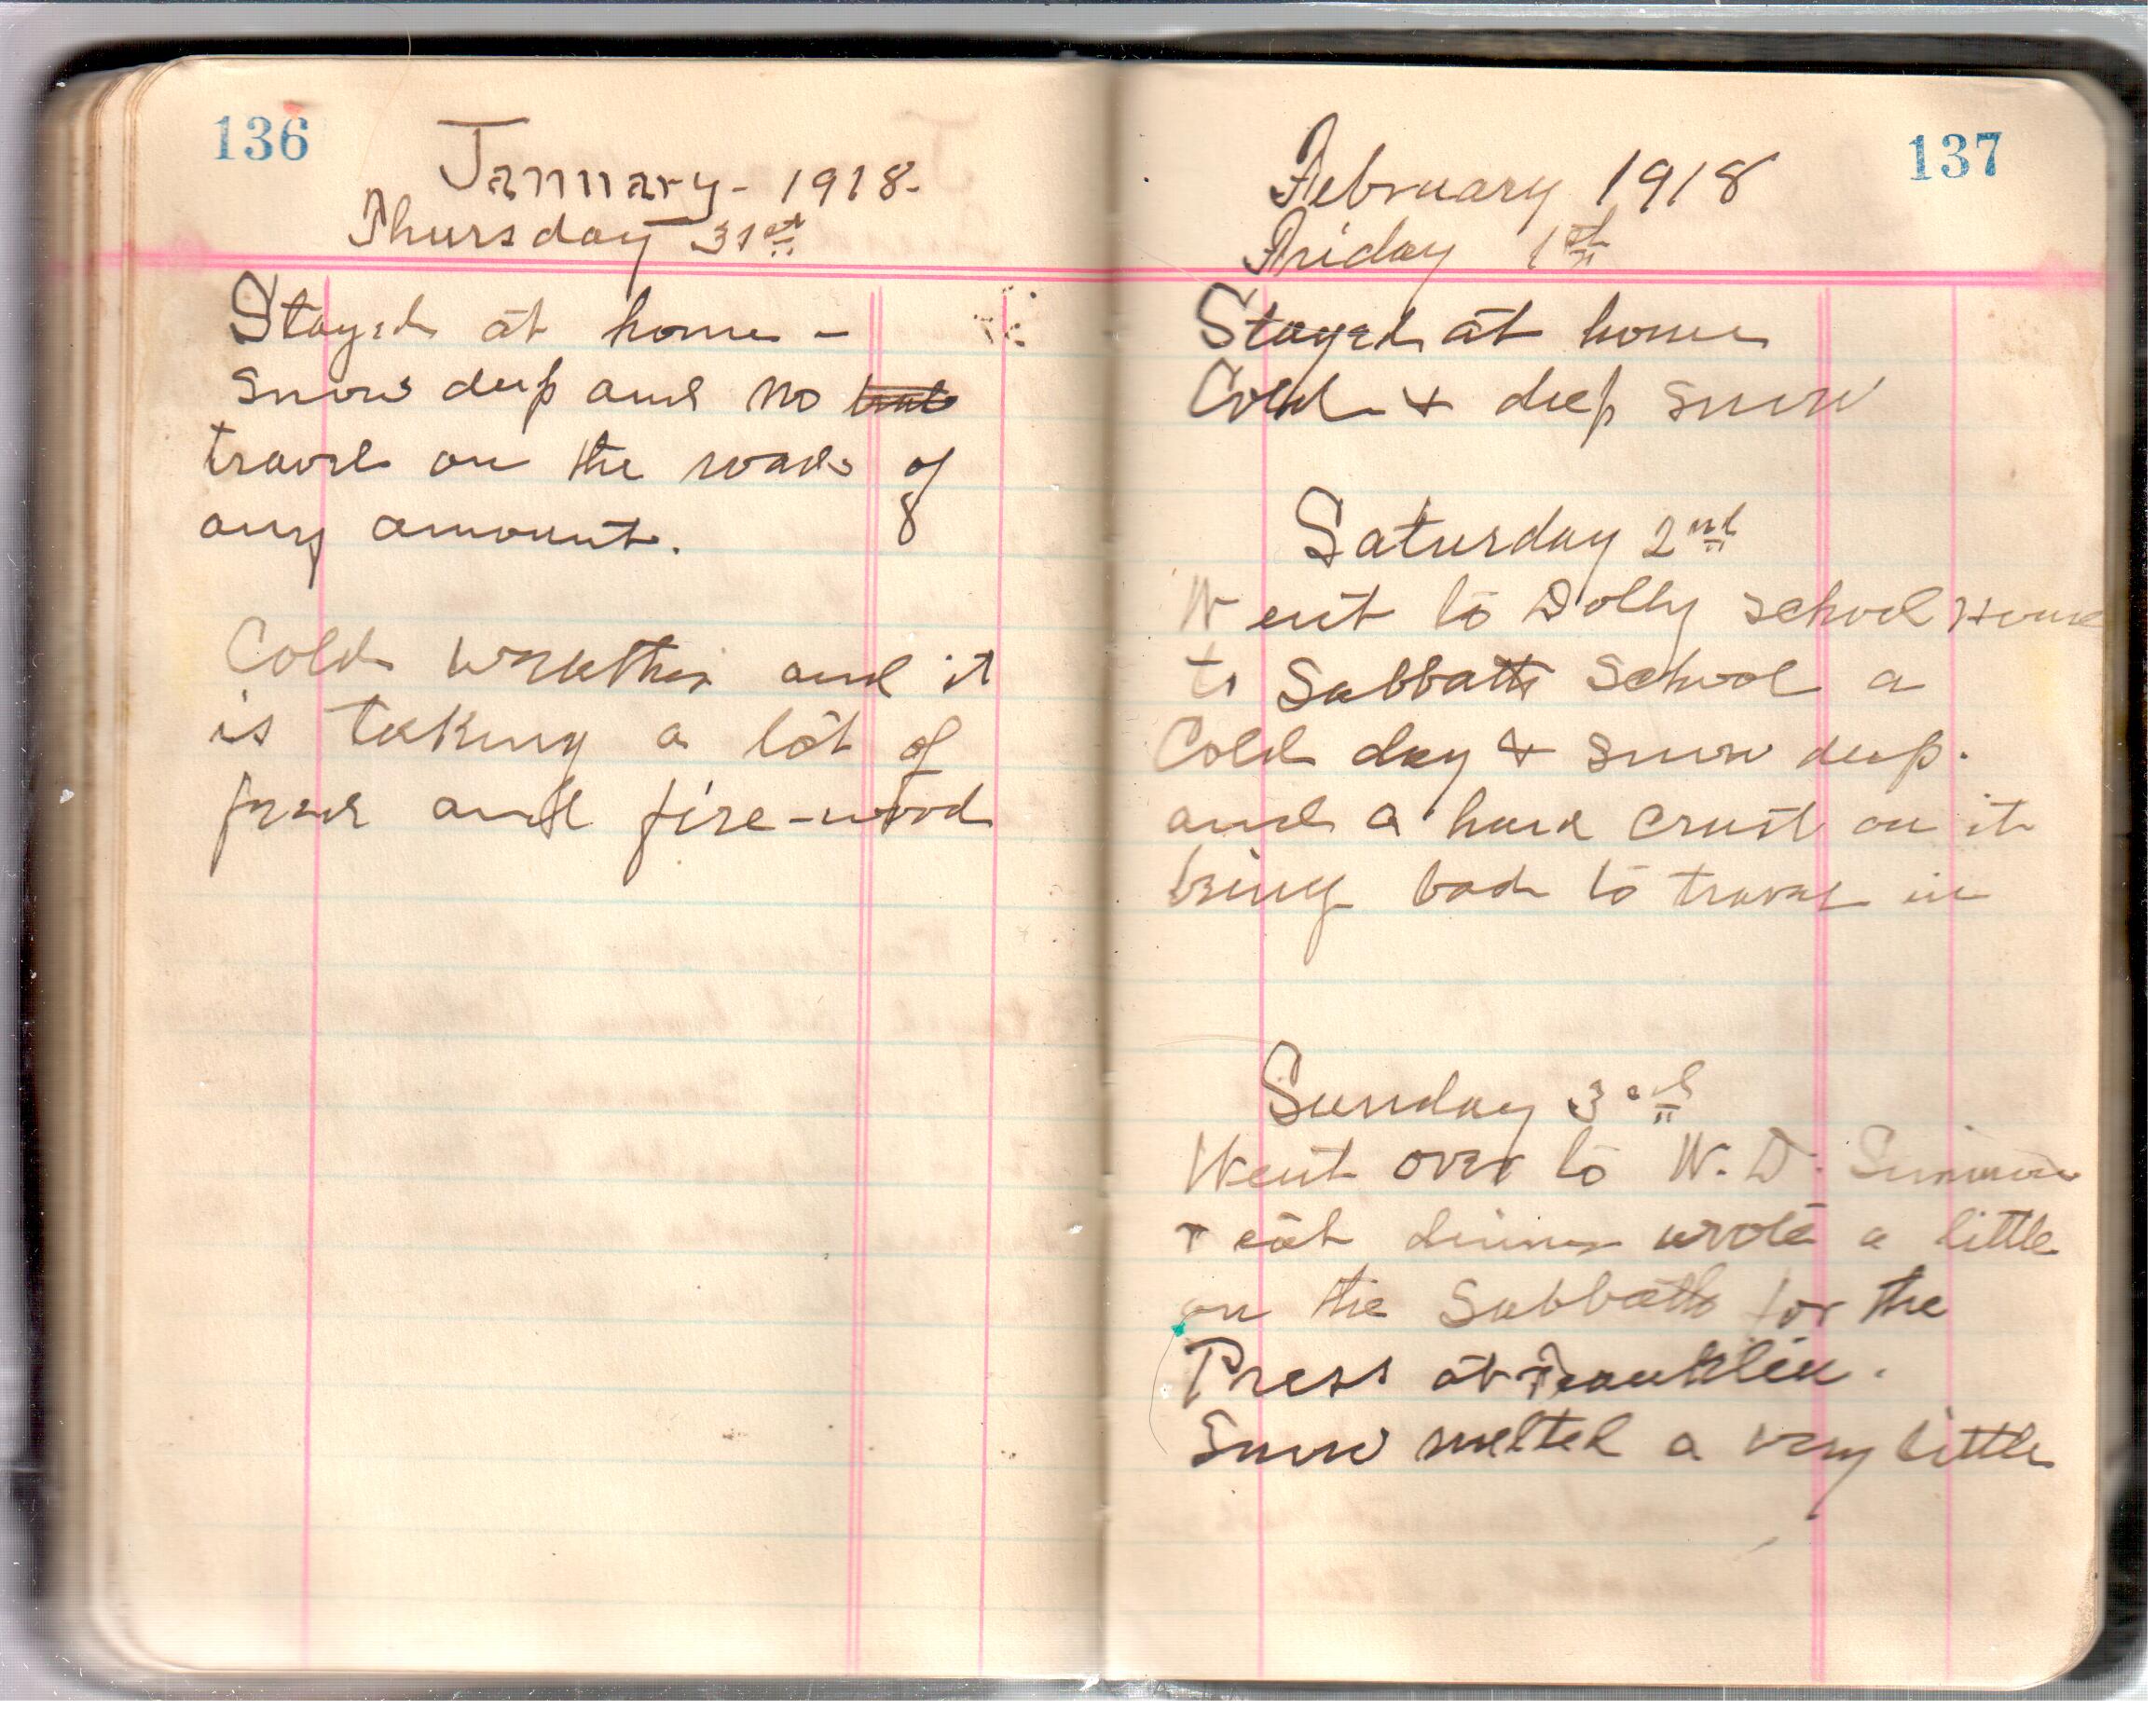 136
January - 1918.
Thursday 31st
Stayed at home -
Snow deep and no
travel on the roads of
any amount.
8
Cold weather and it
is taking a lot of
feed and fire-wood
137
February 1918
Friday 1th
Stayed at home
Cold & deep snow
Saturday 2nd
Went to Dolly School House
to Sabbath School a
Cold day & snow deep.
and a hard crust on it
being bad to travel in
Sunday 3rd
Went over to W. D.
& eat dinner wrote a little
on the Sabbath for the
Press at Franklin.
Snow melted a very little